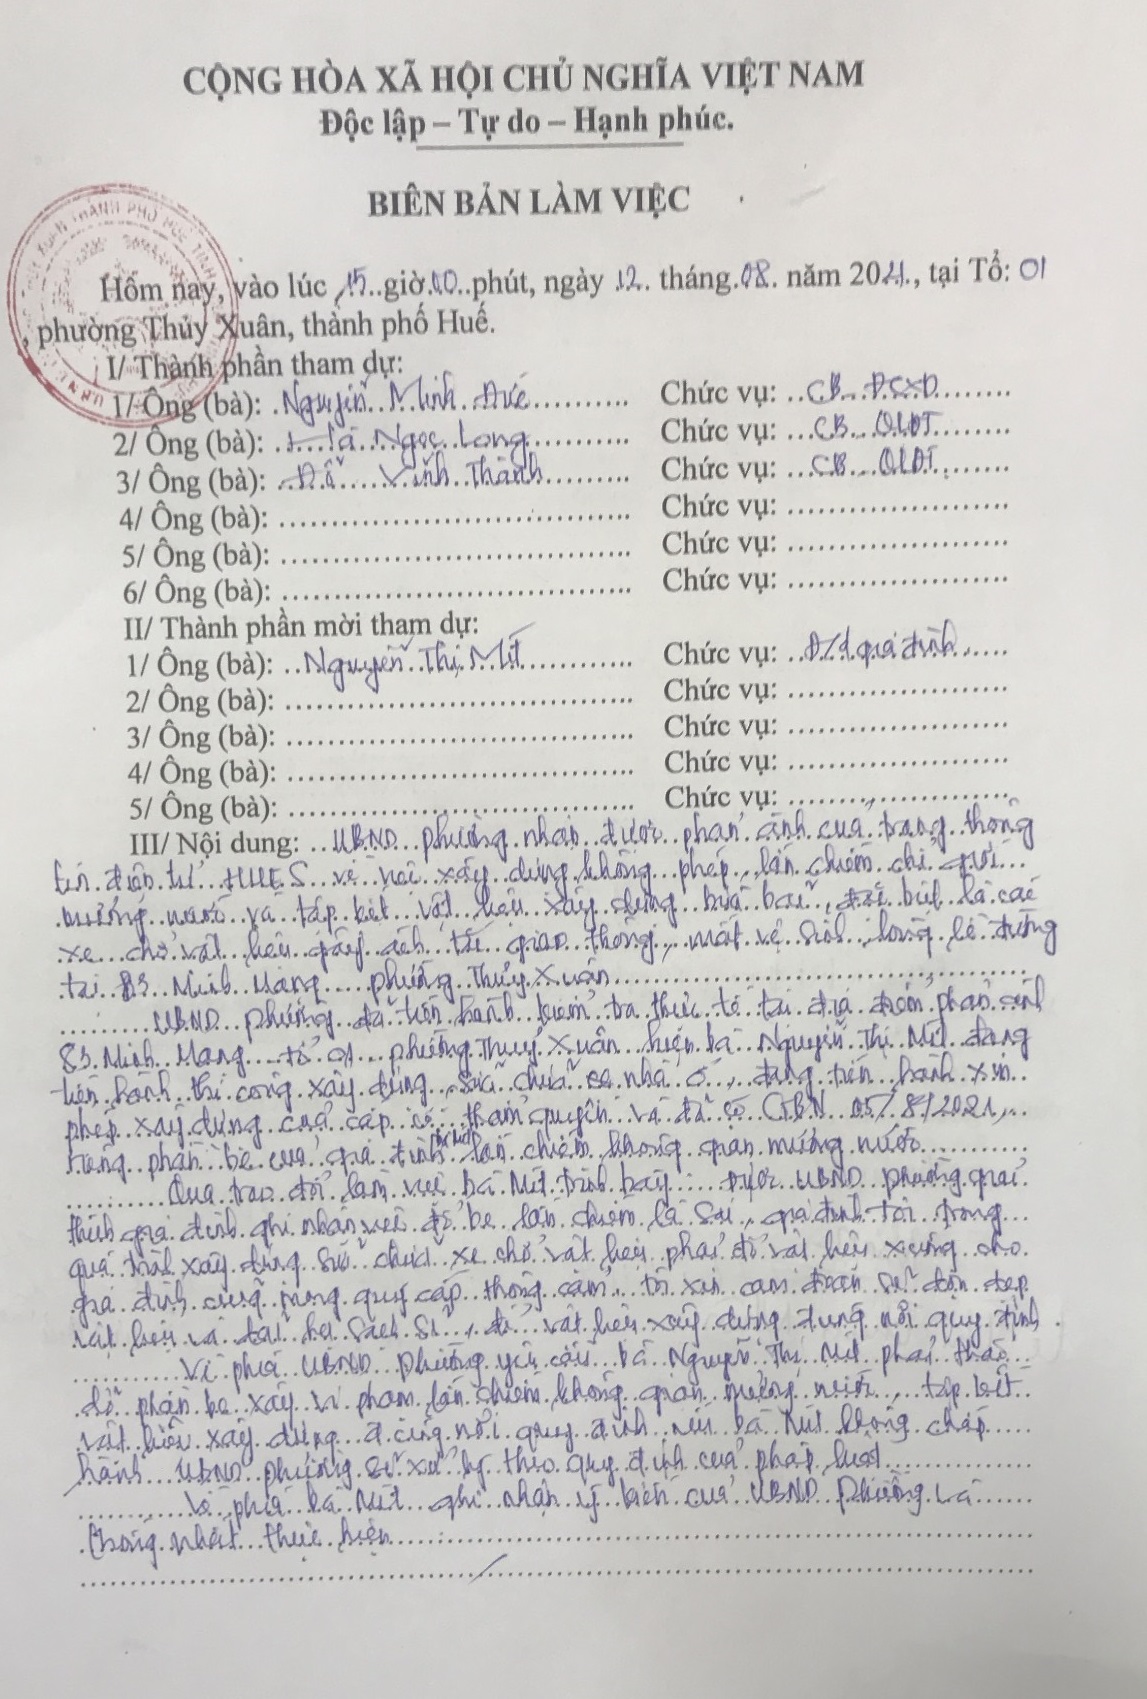 CỘNG HÒA XÃ HỘI CHỦ NGHĨA VIỆT NAM
Độc lập – Tự do – Hạnh phúc.
BIÊN BẢN LÀM VIỆC
Hôm nay, vào lúc 15 giờ 00 phút, ngày 12 tháng 08 năm 2021, tại Tổ: 01
, phường Thủy Xuân, thành phố Huế.
I/ Thành phần tham dự:
1/ Ông (bà): Nguyễn Minh Đức Chức vụ: CB ĐCXD
2/ Ông (bà): Ngọc Long Chức vụ: CB QLĐT
3/ Ông (bà): Đỗ Vĩnh Thành Chức vụ: CB QLĐT
4/ Ông (bà): Chức vụ:
5/ Ông (bà): Chức vụ:
6/ Ông (bà): Chức vụ:
II/ Thành phần mời tham dự:
1/ Ông (bà): Nguyễn Thị Mít Chức vụ: Đ/d gia đình
2/ Ông (bà): Chức vụ:
3/ Ông (bà): Chức vụ:
4/ Ông (bà): Chức vụ:
5/ Ông (bà): Chức vụ:
III/ Nội dung: UBND phường nhận được phản ánh của trang thông
tin điện tử HUES về việc xây dựng không phép, lấn chiếm chỉ giới
mương nước và tập kết vật liệu xây dựng bừa bãi, đặc biệt là các
xe chở vật liệu gây ách tắc giao thông, mất vệ sinh lòng lề đường
tại 83 Minh Mạng phường Thủy Xuân
UBND phường đã tiến hành kiểm tra thực tế tại địa điểm phản ánh
83 Minh Mạng tổ 01 phường Thủy Xuân hiện bà Nguyễn Thị Mít đang
tiến hành thi công xây dựng, sửa chữa nhà ở, đang tiến hành xin
phép xây dựng của cấp có thẩm quyền và đã có GBN 05/8/2021,
riêng phần bê của gia đình lấn chiếm không gian mương nước
Qua trao đổi làm việc bà Mít trình bày: được UBND phường giải
thích gia đình ghi nhận việc đổ bê lấn chiếm là sai, gia đình tôi trong
quá trình xây dựng sửa chữa xe chở vật liệu phải đổ vật liệu xuống cho
gia đình cũng mong quý cấp thông cảm, tôi xin cam đoan sẽ dọn dẹp
vật liệu và sạch sẽ, để vật liệu xây dựng đúng nơi quy định.
Về phía UBND phường yêu cầu bà Nguyễn Thị Mít phải tháo
dỡ phần bê xây vi phạm lấn chiếm không gian mương nước, tập kết
vật liệu xây dựng đúng nơi quy định nếu bà Mít không chấp
hành UBND phường sẽ xử lý theo quy định của pháp luật
Về phía bà Mít ghi nhận ý kiến của UBND phường và
thống nhất thực hiện